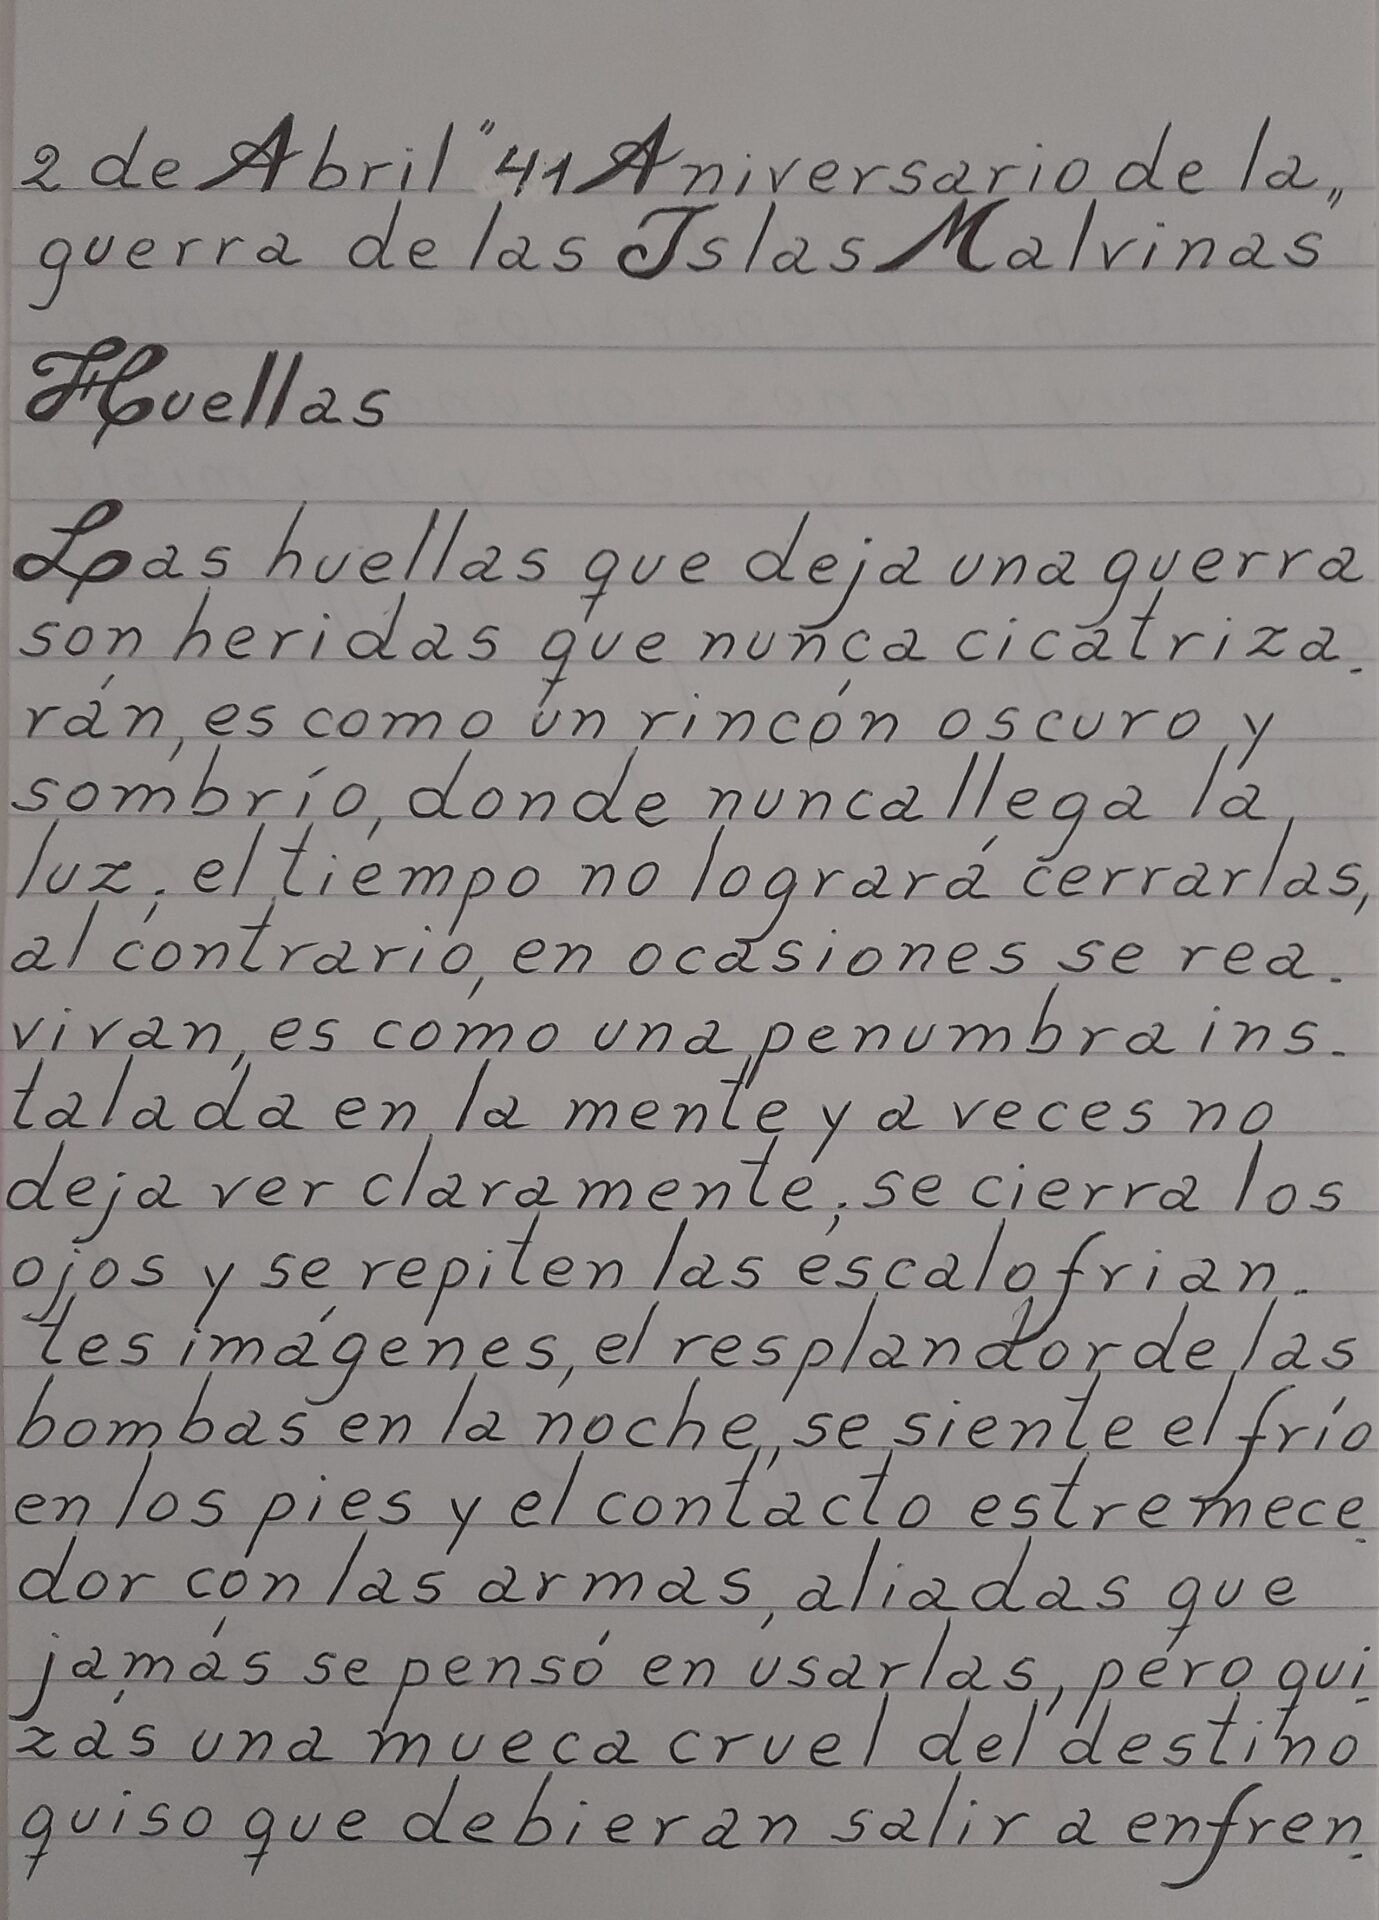 2 de Abril "41 Aniversario de la
guerra de las Islas Malvinas"
Huellas
Las huellas que deja una guerra
son heridas que nunca cicatriza-
rán, es como un rincón oscuro y
sombrío, donde nunca llega la
luz; el tiempo no logrará cerrarlas,
al contrario, en ocasiones se rea-
vivan, es como una penumbra ins-
talada en la mente y a veces no
deja ver claramente; se cierra los
ojos y se repiten las escalofrian-
tes imágenes, el resplandor de las
bombas en la noche, se siente el frío
en los pies y el contacto estremece-
dor con las armas, aliadas que
jamás se pensó en usarlas, pero qui-
zás una mueca cruel del destino
quiso que debieran salir a enfren-